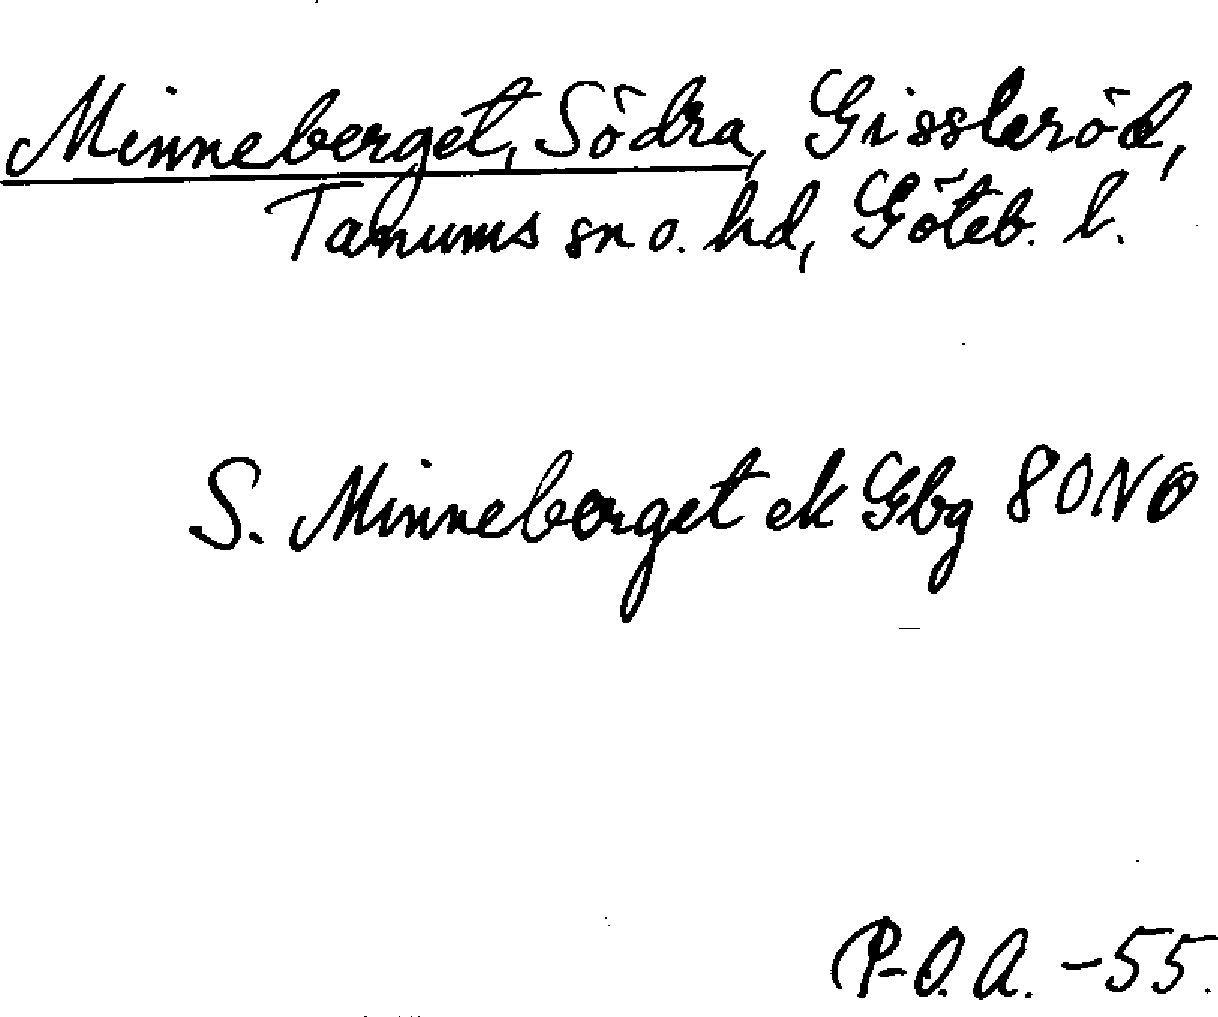 Minneberget, Södra, Gissleröd,
Tanums sn o. hd, Göteb. l.
S. Minneberget ek Gbg 80NO
P-O.A. -55.